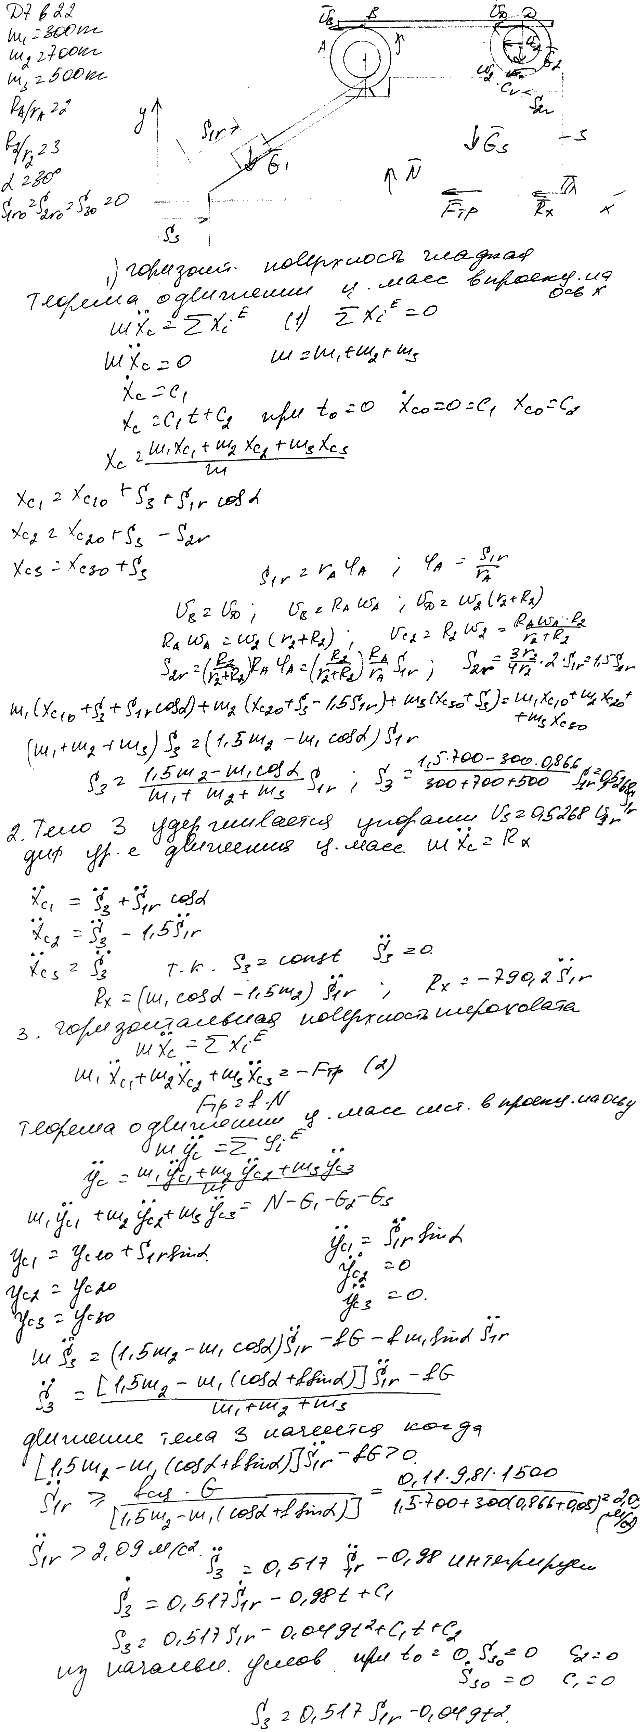 Д7 в 22
m₁=300кг
m₂=700кг
m₃=500кг
R_A/r_A=2
R₂/r₂=3
α=30°
S₁ᵣ₀=S₂ᵣ₀=S₃₀=0
y
S₁ᵣ
S₃
V̄_B B V̄_D D
A
Ḡ₁
ω₂
Ḡ₂
S₂ᵣ
Ḡ₃
N̄
F̄тр
R̄x
x
1) горизонт. поверхность гладкая
Теорема о движении ц. масс в проекц. на
ось x
mẍc = ΣXᵢᴱ (1) ΣXᵢᴱ=0
mẍc=0 m=m₁+m₂+m₃
ẋc=C₁
xc=C₁t+C₂ при t₀=0 ẋc₀=0=C₁ xc₀=C₂
xc=(m₁xc₁+m₂xc₂+m₃xc₃)/m
xc₁=xc₁₀+S₃+S₁ᵣcosα
xc₂=xc₂₀+S₃-S₂ᵣ
xc₃=xc₃₀+S₃
S₁ᵣ=r_Aφ_A ; φ_A=S₁ᵣ/r_A
V_B=V_D; V_B=R_Aω_A; V_D=ω₂(r₂+R₂)
R_Aω_A=ω₂(r₂+R₂); Vc₂=R₂ω₂=R_Aω_A·R₂/(r₂+R₂)
S₂ᵣ=(R₂/(r₂+R₂))R_Aφ_A=(R₂/(r₂+R₂))R_A/r_A S₁ᵣ; S₂ᵣ=3r₂/4r₂·2·S₁ᵣ=1,5S₁ᵣ
m₁(xc₁₀+S₃+S₁ᵣcosα)+m₂(xc₂₀+S₃-1,5S₁ᵣ)+m₃(xc₃₀+S₃)=m₁xc₁₀+m₂xc₂₀+
+m₃xc₃₀
(m₁+m₂+m₃)S₃=(1,5m₂-m₁cosα)S₁ᵣ
S₃=(1,5m₂-m₁cosα)/(m₁+m₂+m₃) S₁ᵣ; S₃=(1,5·700-300·0,866)/(300+700+500) S₁ᵣ=0,5268S₁ᵣ
2. Тело 3 удерживается упорами V₃=0,5268V₁ᵣ
диф ур. е движения ц. масс mẍc=Rx
ẍc₁=S̈₃+S̈₁ᵣcosα
ẍc₂=S̈₃-1,5S̈₁ᵣ
ẍc₃=S̈₃ т.к. S₃=const S̈₃=0
Rx=(m₁cosα-1,5m₂)S̈₁ᵣ; Rx=-790,2S̈₁ᵣ
3. горизонтальная поверхность шероховата
mẍc=ΣXᵢᴱ
m₁ẍc₁+m₂ẍc₂+m₃ẍc₃=-Fтр (2)
Fтр=f·N
Теорема о движении ц. масс сист. в проекц. на ось y
mÿc=Σyᵢᴱ
ÿc=(m₁ÿc₁+m₂ÿc₂+m₃ÿc₃)/m
m₁ÿc₁+m₂ÿc₂+m₃ÿc₃=N-G₁-G₂-G₃
yc₁=yc₁₀+S₁ᵣsinα. ÿc₁=S̈₁ᵣsinα
yc₂=yc₂₀ ÿc₂=0
yc₃=yc₃₀ ÿc₃=0.
mS̈₃=(1,5m₂-m₁cosα)S̈₁ᵣ-fG-fm₁sinαS̈₁ᵣ
S̈₃=([1,5m₂-m₁(cosα+fsinα)]S̈₁ᵣ-fG)/(m₁+m₂+m₃)
движение тела 3 начнется когда
[1,5m₂-m₁(cosα+fsinα)]S̈₁ᵣ-fG>0
S̈₁ᵣ≥fсц·G/[1,5m₂-m₁(cosα+fsinα)]=0,11·9,81·1500/(1,5·700+300(0,866+0,05))=2,09(м/с²)
S̈₁ᵣ>2,09м/с². S̈₃=0,517S̈₁ᵣ-0,98 интегрируем
Ṡ₃=0,517Ṡ₁ᵣ-0,98t+C₁
S₃=0,517S₁ᵣ-0,049t²+C₁t+C₂
из начальн. услов при t₀=0, Ṡ₃₀=0 C₂=0
S₃₀=0 C₁=0
S₃=0,517S₁ᵣ-0,049t².